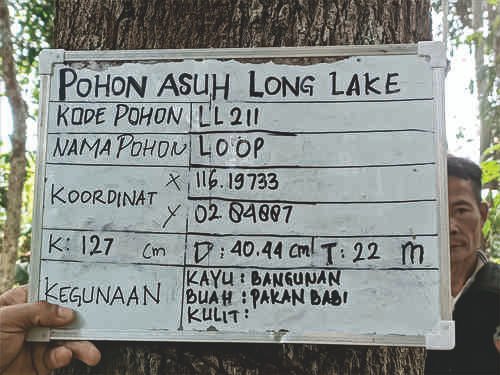 POHON ASUH LONG LAKE
KODE POHON LL211
NAMA POHON LOOP
KOORDINAT X 116.19733
Y 02.04007
K: 127 cm D: 40.44 cm T: 22 m
KEGUNAAN KAYU: BANGUNAN
BUAH: PAKAN BABI
KULIT: